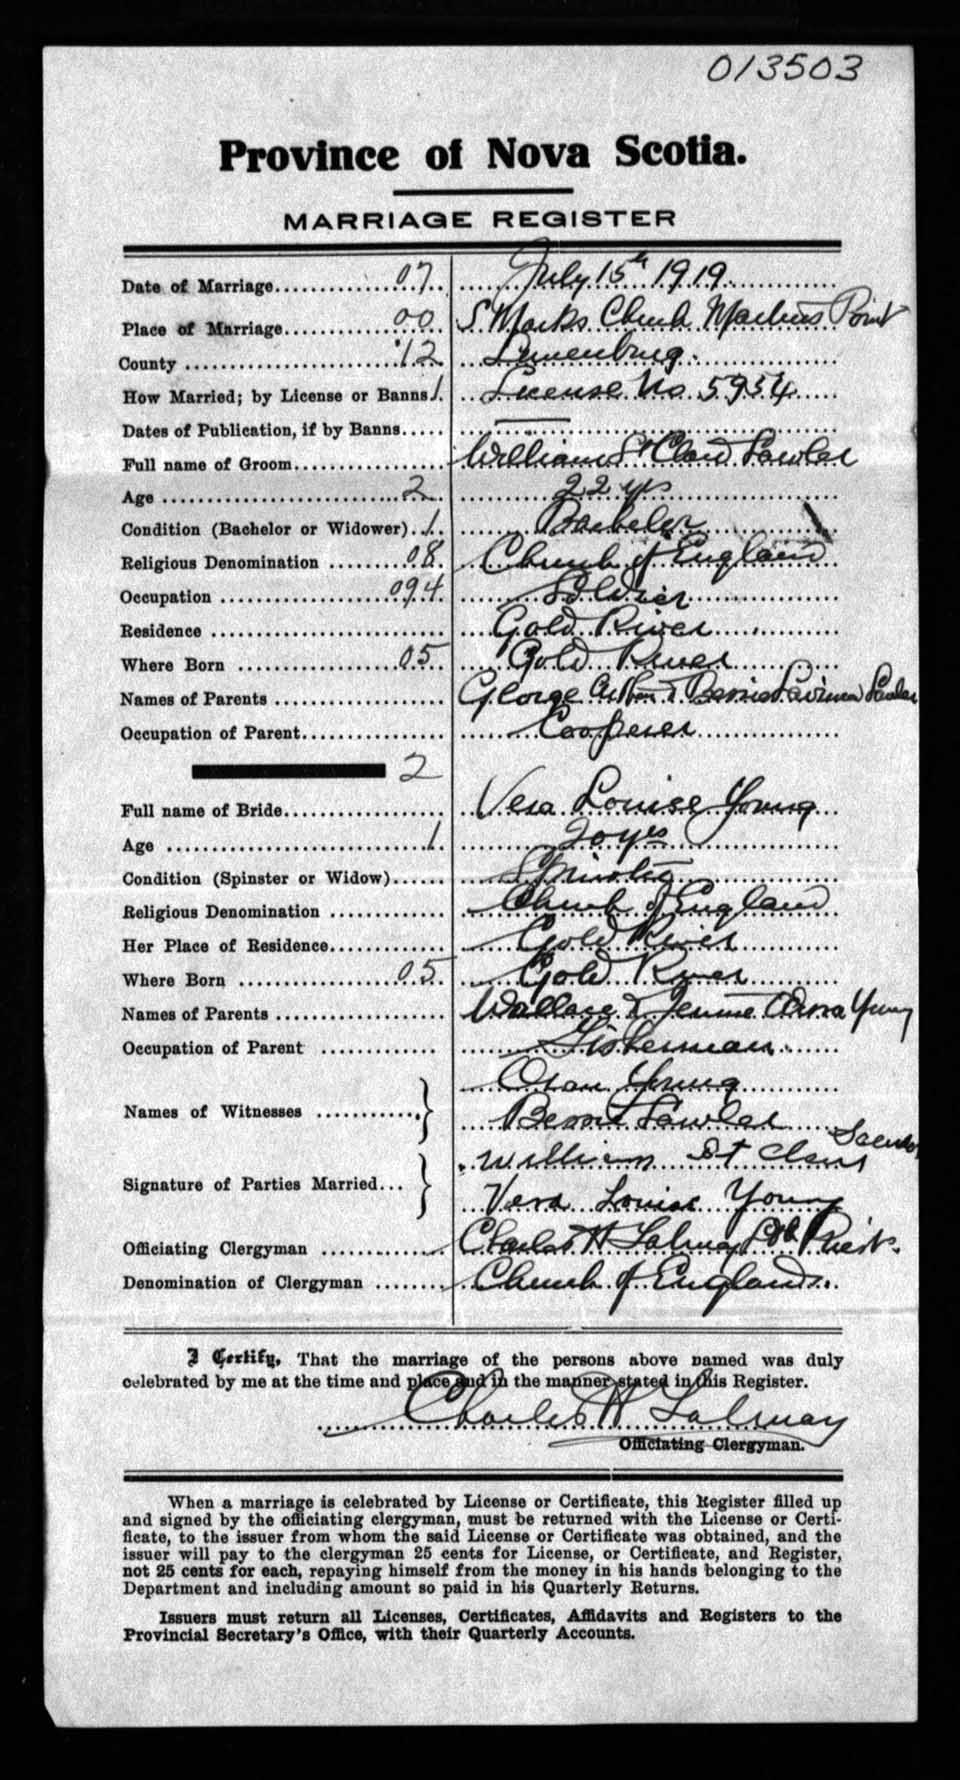 013503
Province of Nova Scotia.
MARRIAGE REGISTER
Date of Marriage 07 July 15th 1919.
Place of Marriage 00 S Marks Church Martins Point
County 12 Lunenburg.
How Married; by License or Banns 1 License No. 5954
Dates of Publication, if by Banns
Full name of Groom William St Clair Lawler
Age 2 22 yrs
Condition (Bachelor or Widower) 1 Bachelor
Religious Denomination 08 Church of England
Occupation 094 Soldier
Residence Gold River
Where Born 05 Gold River
Names of Parents George Arthur & Bessie Lavinia Lawler
Occupation of Parent Cooperer
2
Full name of Bride Vera Louise Young
Age 1 20 yrs
Condition (Spinster or Widow) Spinster
Religious Denomination Church of England
Her Place of Residence Gold River
Where Born 05 Gold River
Names of Parents Wallace & Jennie Young
Occupation of Parent Fisherman
Names of Witnesses Oran Young
Bessie Lawler
Signature of Parties Married... William St Clair
Vera Louise Young
Officiating Clergyman Charles H Talmay Priest.
Denomination of Clergyman Church of England.
I Certify, That the marriage of the persons above named was duly
celebrated by me at the time and place and in the manner stated in this Register.
Charles H Talmay
Officiating Clergyman.
When a marriage is celebrated by License or Certificate, this Register filled up
and signed by the officiating clergyman, must be returned with the License or Certi-
ficate, to the issuer from whom the said License or Certificate was obtained, and the
issuer will pay to the clergyman 25 cents for License, or Certificate, and Register,
not 25 cents for each, repaying himself from the money in his hands belonging to the
Department and including amount so paid in his Quarterly Returns.
Issuers must return all Licenses, Certificates, Affidavits and Registers to the
Provincial Secretary's Office, with their Quarterly Accounts.